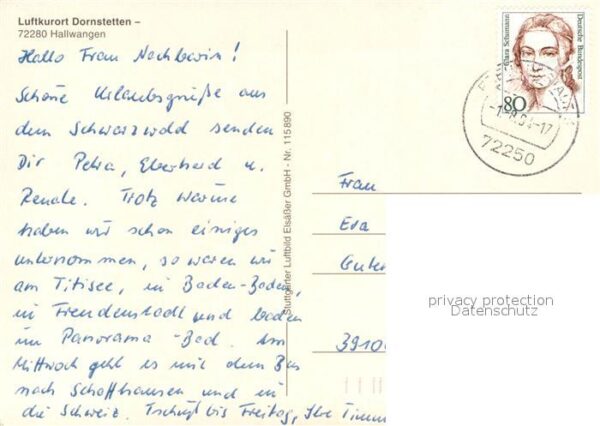 Luftkurort Dornstetten –
72280 Hallwangen
Hallo Frau Nachbarin!
Schöne Urlaubsgrüße aus
dem Schwarzwald senden
Dir Petra, Eberhard u.
Renate. Trotz Wärme
haben wir schon einiges
unternommen, so waren wir
am Titisee, in Baden-Baden,
in Freudenstadt und baden
im Panorama-Bad. Am
Mittwoch geht es mit dem Bus
nach Schaffhausen und in
die Schweiz. Tschüß bis Freitag, Ihre
Stuttgarter Luftbild Elsäßer GmbH - Nr. 115890
Clara Schumann
Deutsche Bundespost
80
72250
Frau
Eva
Guten
3910
privacy protection
Datenschutz